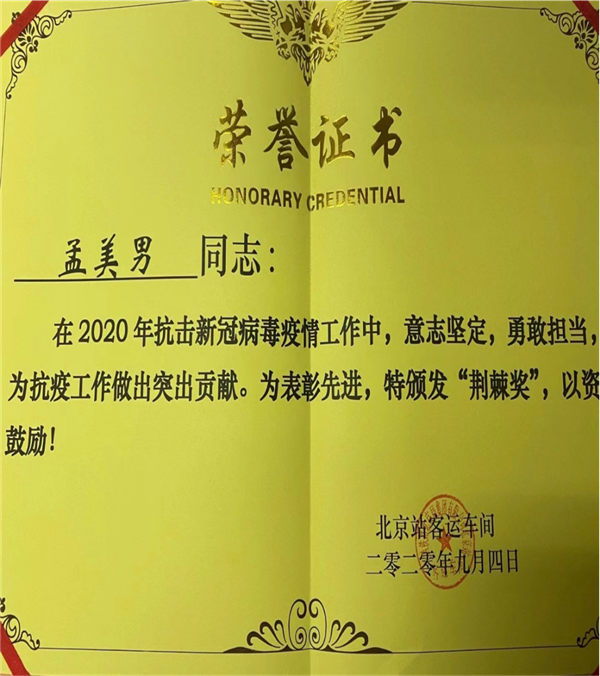 荣誉证书
HONORARY CREDENTIAL
孟美男 同志：
在2020年抗击新冠病毒疫情工作中，意志坚定，勇敢担当，
为抗疫工作做出突出贡献。为表彰先进，特颁发“荆棘奖”，以资
鼓励！
北京站客运车间
二零二零年九月四日